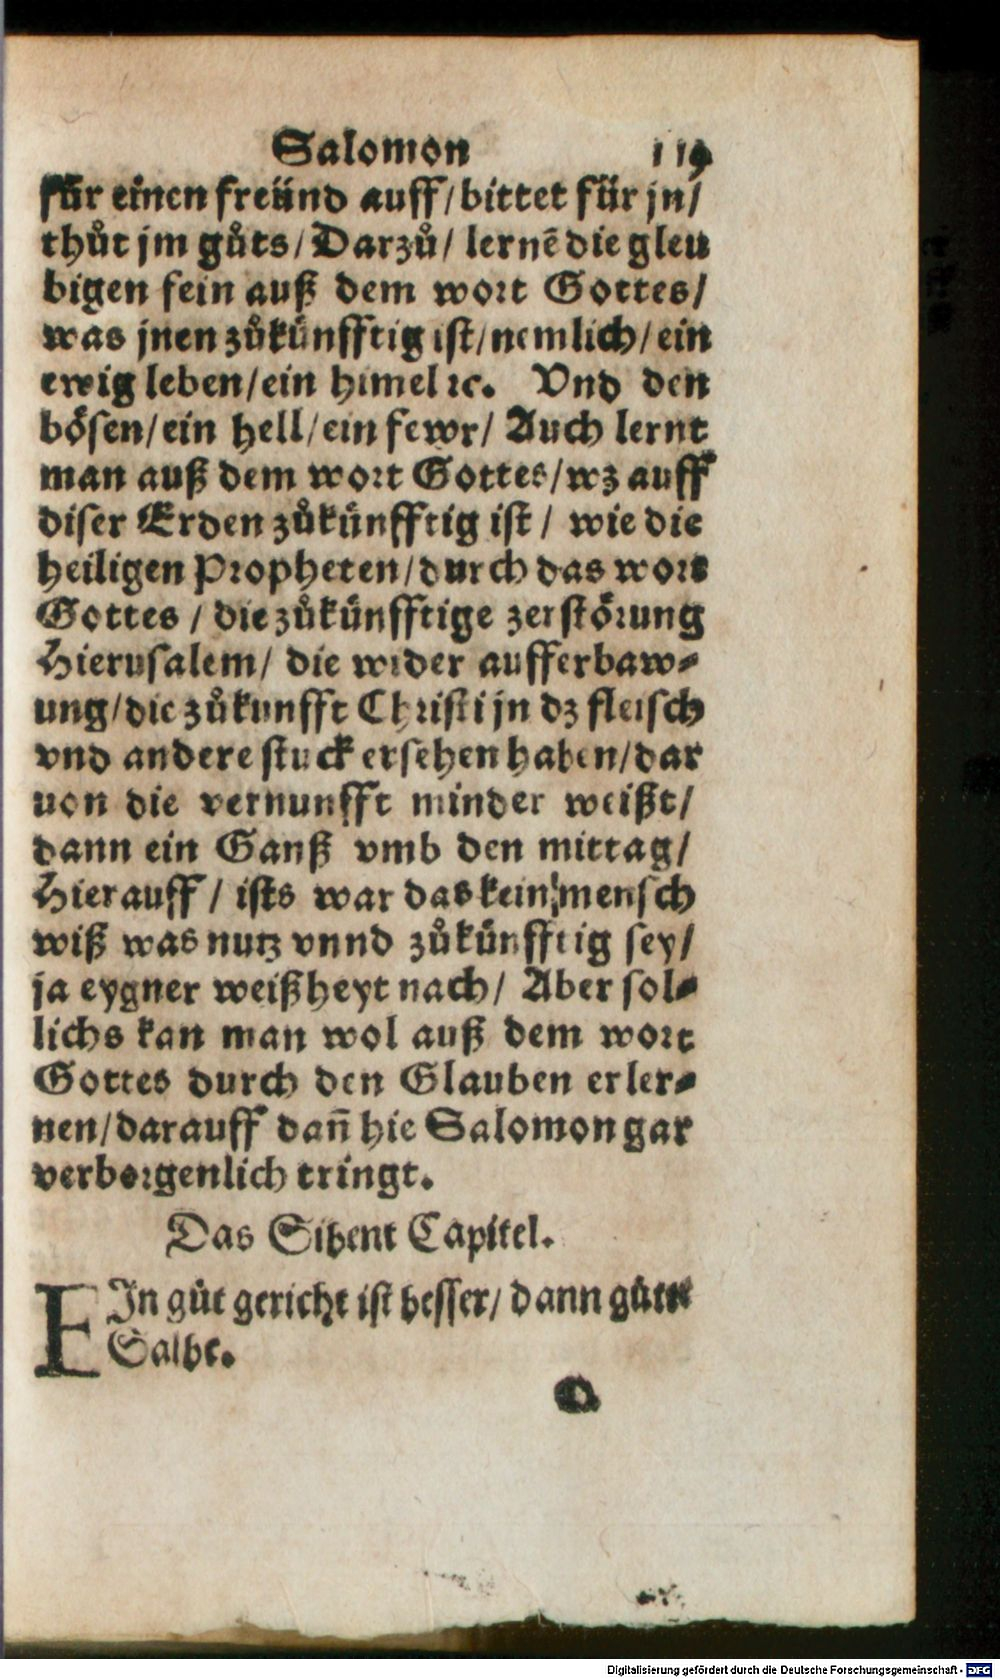 Salomon 119
für einen freünd auff/bittet für jn/
thůt jm gůts/Darzů/ lernẽ die gleu
bigen fein auß dem wort Gottes/
was jnen zůkünfftig ist/nemlich/ein
ewig leben/ein himel ꝛc. Vnd den
bösen/ein hell/ein fewr/ Auch lernt
man auß dem wort Gottes/wz auff
diser Erden zůkünfftig ist/ wie die
heiligen Propheten/durch das wort
Gottes / die zůkünfftige zerstörung
Hierusalem/ die wider aufferbaw-
ung/die zůkunfft Christi jn dz fleisch
vnd andere stuck ersehen haben/dar
uon die vernunfft minder weißt/
dann ein Ganß vmb den mittag/
Hierauff / ists war das kein mensch
wiß was nutz vnnd zůkünfftig sey/
ja eygner weißheyt nach/ Aber sol-
lichs kan man wol auß dem wort
Gottes durch den Glauben erler-
nen/darauff dañ hie Salomon gar
verborgenlich tringt.
Das Sibent Capitel.
EIn gůt gericht ist besser/dann gůte
Salbe.
Q
Digitalisierung gefördert durch die Deutsche Forschungsgemeinschaft - DFG